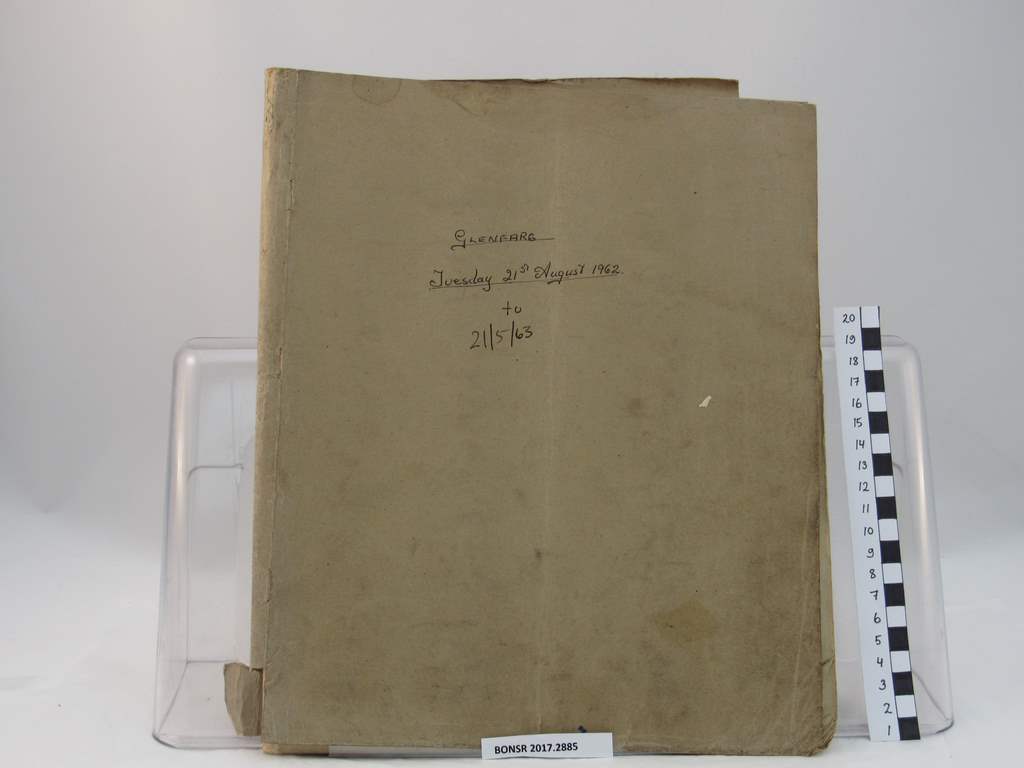 GLENFARG
Tuesday 21st August 1962.
to
21/5/63
20
19
18
17
16
15
14
13
12
11
10
9
8
7
6
5
4
3
2
1
BONSR 2017.2885